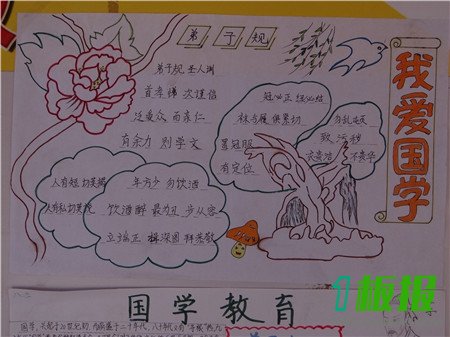 弟子规
我爱国学
弟子规 圣人训
首孝悌 次谨信
泛爱众 而亲仁
有余力 则学文
冠必正 纽必结
袜与履 俱紧切
置冠服
有定位
勿乱顿
致污秽
衣贵洁 不贵华
人有短 切莫揭
人有私 切莫说
年方少 勿饮酒
饮酒醉 最为丑 步从容
立端正 揖深圆 拜恭敬
国学教育
1板报